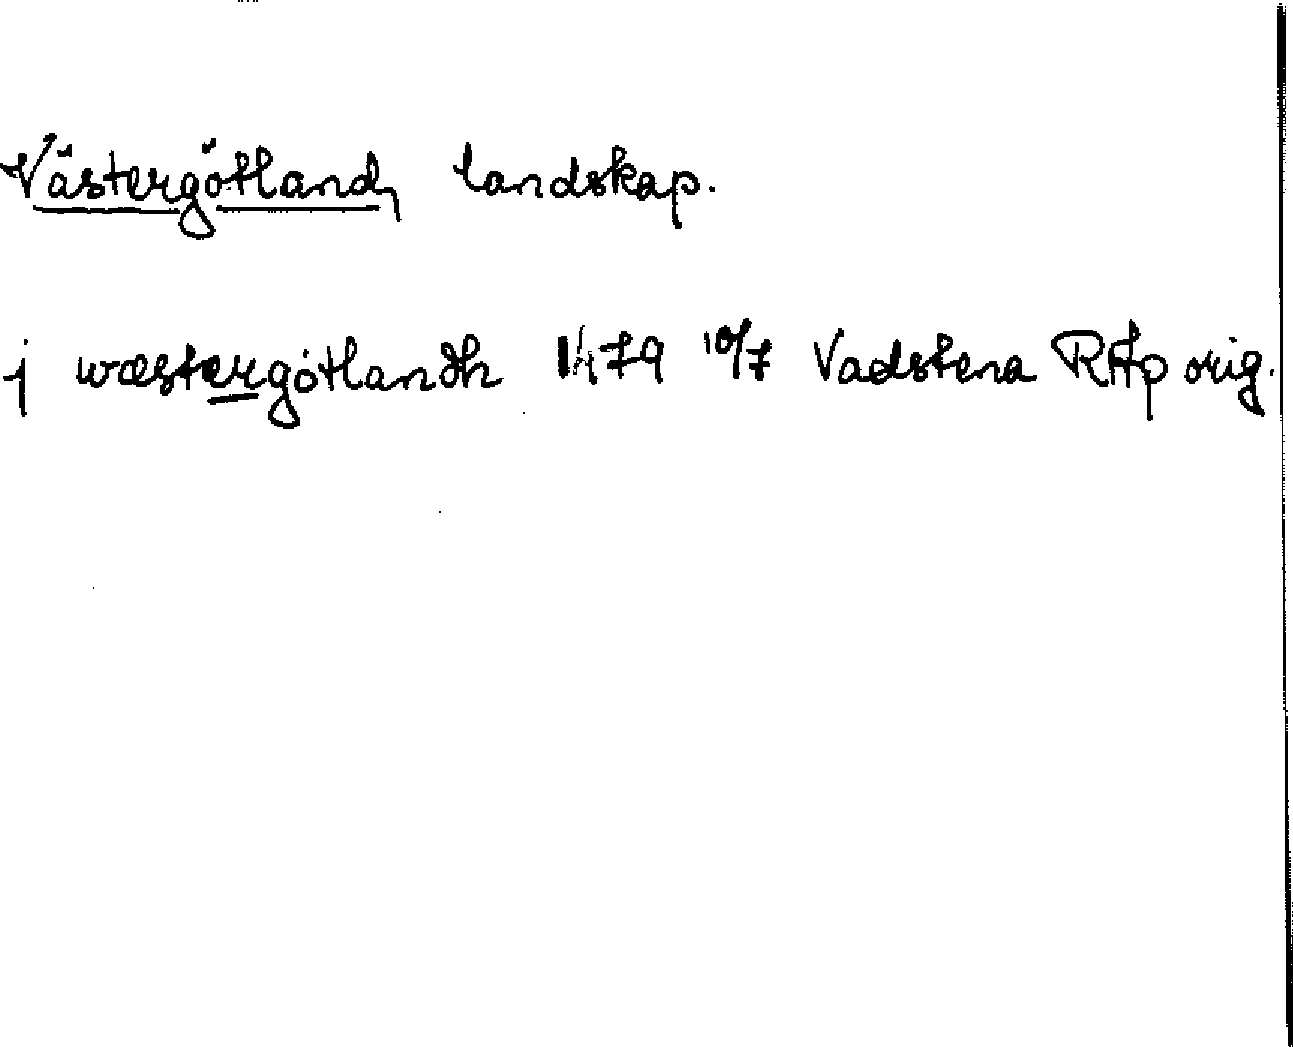 Västergötland, landskap.
j wæstergötlandh 1479 10/7 Vadstena RAp orig.